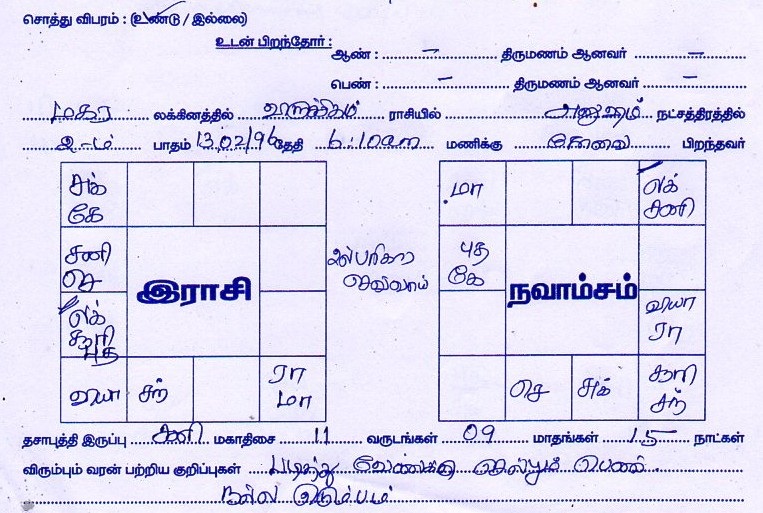 சொத்து விபரம் : (உண்டு / இல்லை)
உடன் பிறந்தோர் :
ஆண் : – திருமணம் ஆனவர் –
பெண் : – திருமணம் ஆனவர் –
மகர லக்கினத்தில் விருச்சிகம் ராசியில் அனுஷம் நட்சத்திரத்தில்
2-ம் பாதம் 13/02/96 தேதி 6:10am மணிக்கு காலை பிறந்தவர்
சுக்
கே
சனி
செ
லக்
சூரி
புத
வியா
சந்
ரா
மா
இராசி
பரிகார
செவ்வாய்
மா
லக்
சனி
புத
கே
வியா
ரா
செ
சுக்
சூரி
சந்
நவாம்சம்
தசாபுத்தி இருப்பு சனி மகாதிசை 11 வருடங்கள் 09 மாதங்கள் 15 நாட்கள்
விரும்பும் வரன் பற்றிய குறிப்புகள் படித்து வேலைக்கு செல்லும் பெண்
நல்ல குடும்பம்